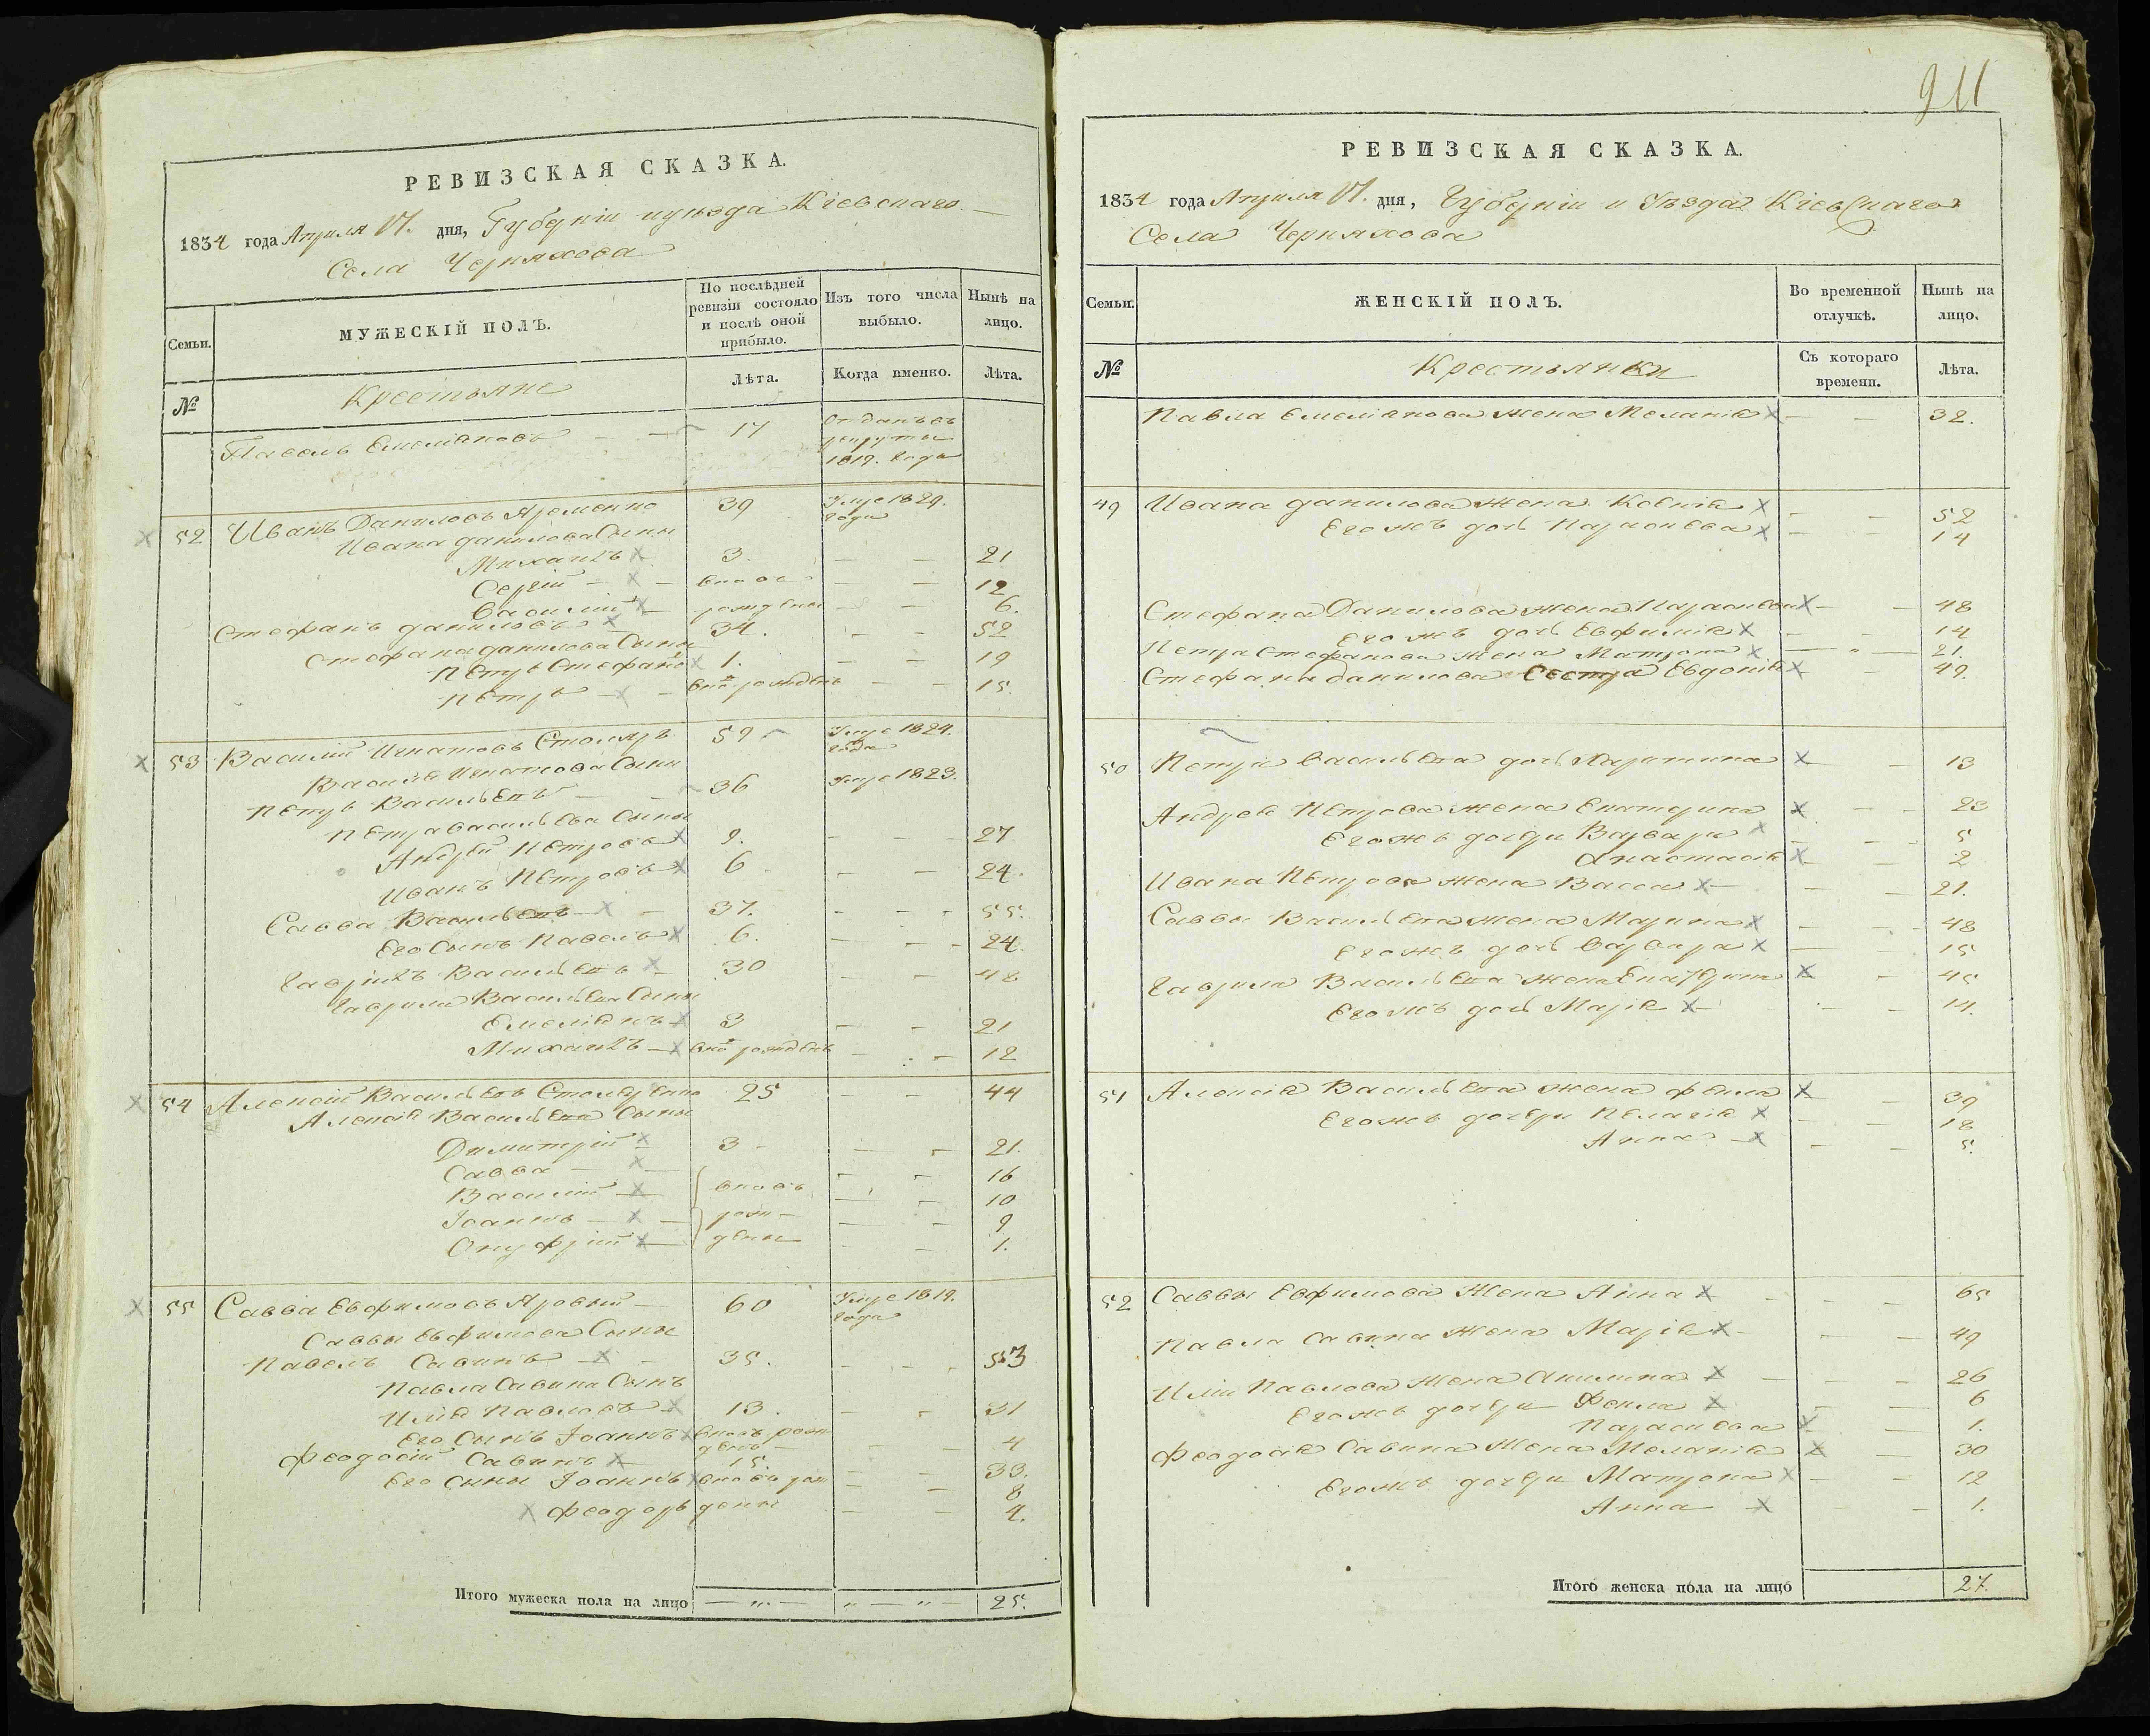 РЕВИЗСКАЯ СКАЗКА.
1834 года Апреля дня, Губерніи и уезда Кіевскаго
Села Черняхова
Семьи.
МУЖЕСКІЙ ПОЛЪ.
По послѣдней ревизіи состояло и послѣ оной прибыло.
Изъ того числа выбыло.
Нынѣ на лицо.
№
Крестьяне
Лѣта.
Когда именно.
Лѣта.
Павелъ Емеліановъ 17 Отданъ въ рекруты
1819. Года
52 Иванъ Даниловъ Яременко 39 Умре 1829.
года
Ивана данилова Сыны
Михаилъ 3. 21
Сергій вновь 12
Василій рождены 6.
Стефанъ даниловъ 34. 52
Стефана данилова Сыны
Петръ Стефановъ 1. 19
Петръ вно рожденъ 15.
53 Василій Игнатовъ Столяръ 59 Умре 1824.
года
Василія Игнатова Сыны
Петръ Васильевъ 36 Умре 1823.
Петра васильева Сыны
Андрей Петровъ 9. 27
Иванъ Петровъ 6 24.
Савва Васильевъ 37. 55.
Его Сынъ Павелъ 6. 24.
Гавріилъ Васильевъ 30 48
Гаврила Васильева Сыны
Емеліанъ 3 21
Михаилъ вно рожденъ 12
54 Алексій Васильевъ Столяренко 25 44
Алексія Васильева Сыны
Димитрій 3 21.
Савва 16
Василій вновь 10
Іоаннъ рож- 9
Онуфрій дены 1.
55 Савва Евфимовъ Яровый 60 Умре 1819.
года
Саввы Евфимова Сыны
Павелъ Савинъ 35. 53
Павла Савина Сынъ
Илія Павловъ 13. 31
Его Сынъ Іоаннъ вновь рож
денъ 4
Феодосій Савинъ 15. 33.
Его Сыны Іоаннъ вновь рож 8
Феодоръ дены 4.
Итого мужеска пола на лицо 25.
911
РЕВИЗСКАЯ СКАЗКА.
1834 года Апреля дня, Губерніи и Уезда Кіевскаго
Села Черняхова
Семьи.
ЖЕНСКІЙ ПОЛЪ.
Во временной отлучкѣ.
Нынѣ на лицо.
№
Крестьянки
Съ котораго времени.
Лѣта.
Павла Емеліанова жена Меланія 32.
49 Ивана данилова жена Ксенія 52
Егожъ дочь Параскева 14
Стефана Данилова жена Параскева 48
Егожъ дочь Евфимія 14
Петра Стефанова жена Матрона 21.
Стефана данилова Сестра Евдокія 49.
50 Петра васильева дочь Харитина 13
Андрея Петрова жена Екатерина 23
Егожъ дочери Варвара 5
Анастасія 2
Ивана Петрова жена Васса 21.
Саввы Васильева жена Марина 48
Егожъ дочь варвара 15
Гаврила Васильева жена Екатерина 45
Егожъ дочь Марія 14.
51 Алексія Васильева жена Фекла 39
Егожъ дочери Пелагія 18
Анна 5.
52 Саввы Евфимова Жена Анна 65
Павла Савина Жена Марія 49
Иліи Павлова Жена Акилина 26
Егожъ дочери Фекла 6
Параскева 1.
Феодосія Савина Жена Меланія 30
Егожъ дочери Матрона 12
Анна 1.
Итого женска пола на лицо 27.